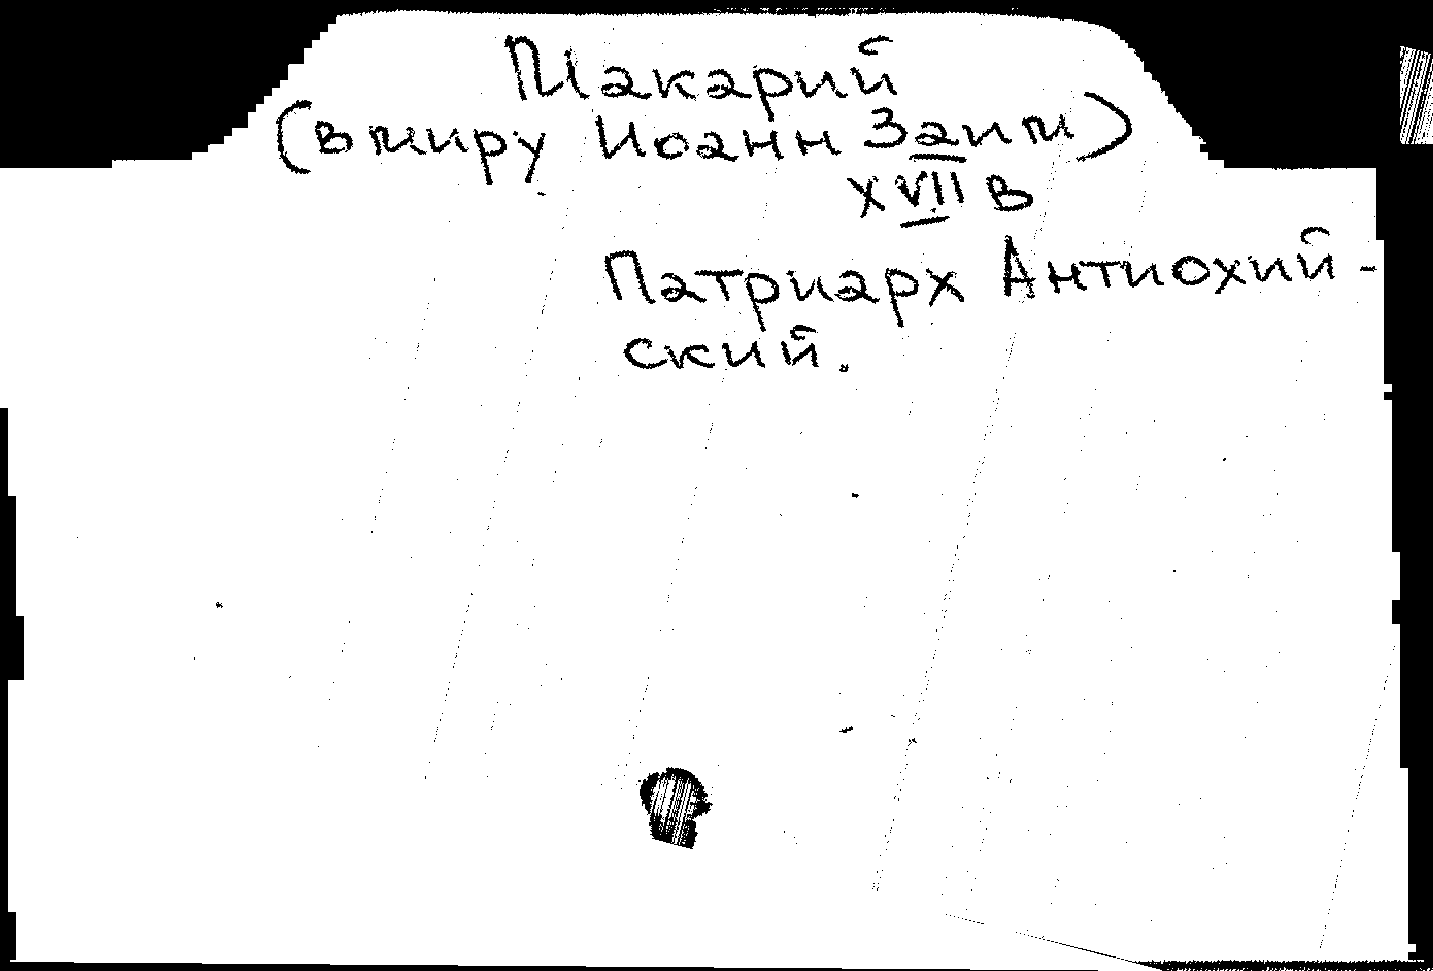 Макарий
(в миру Иоанн Заим)
XVII в
Патриарх Антиохий-
ский.